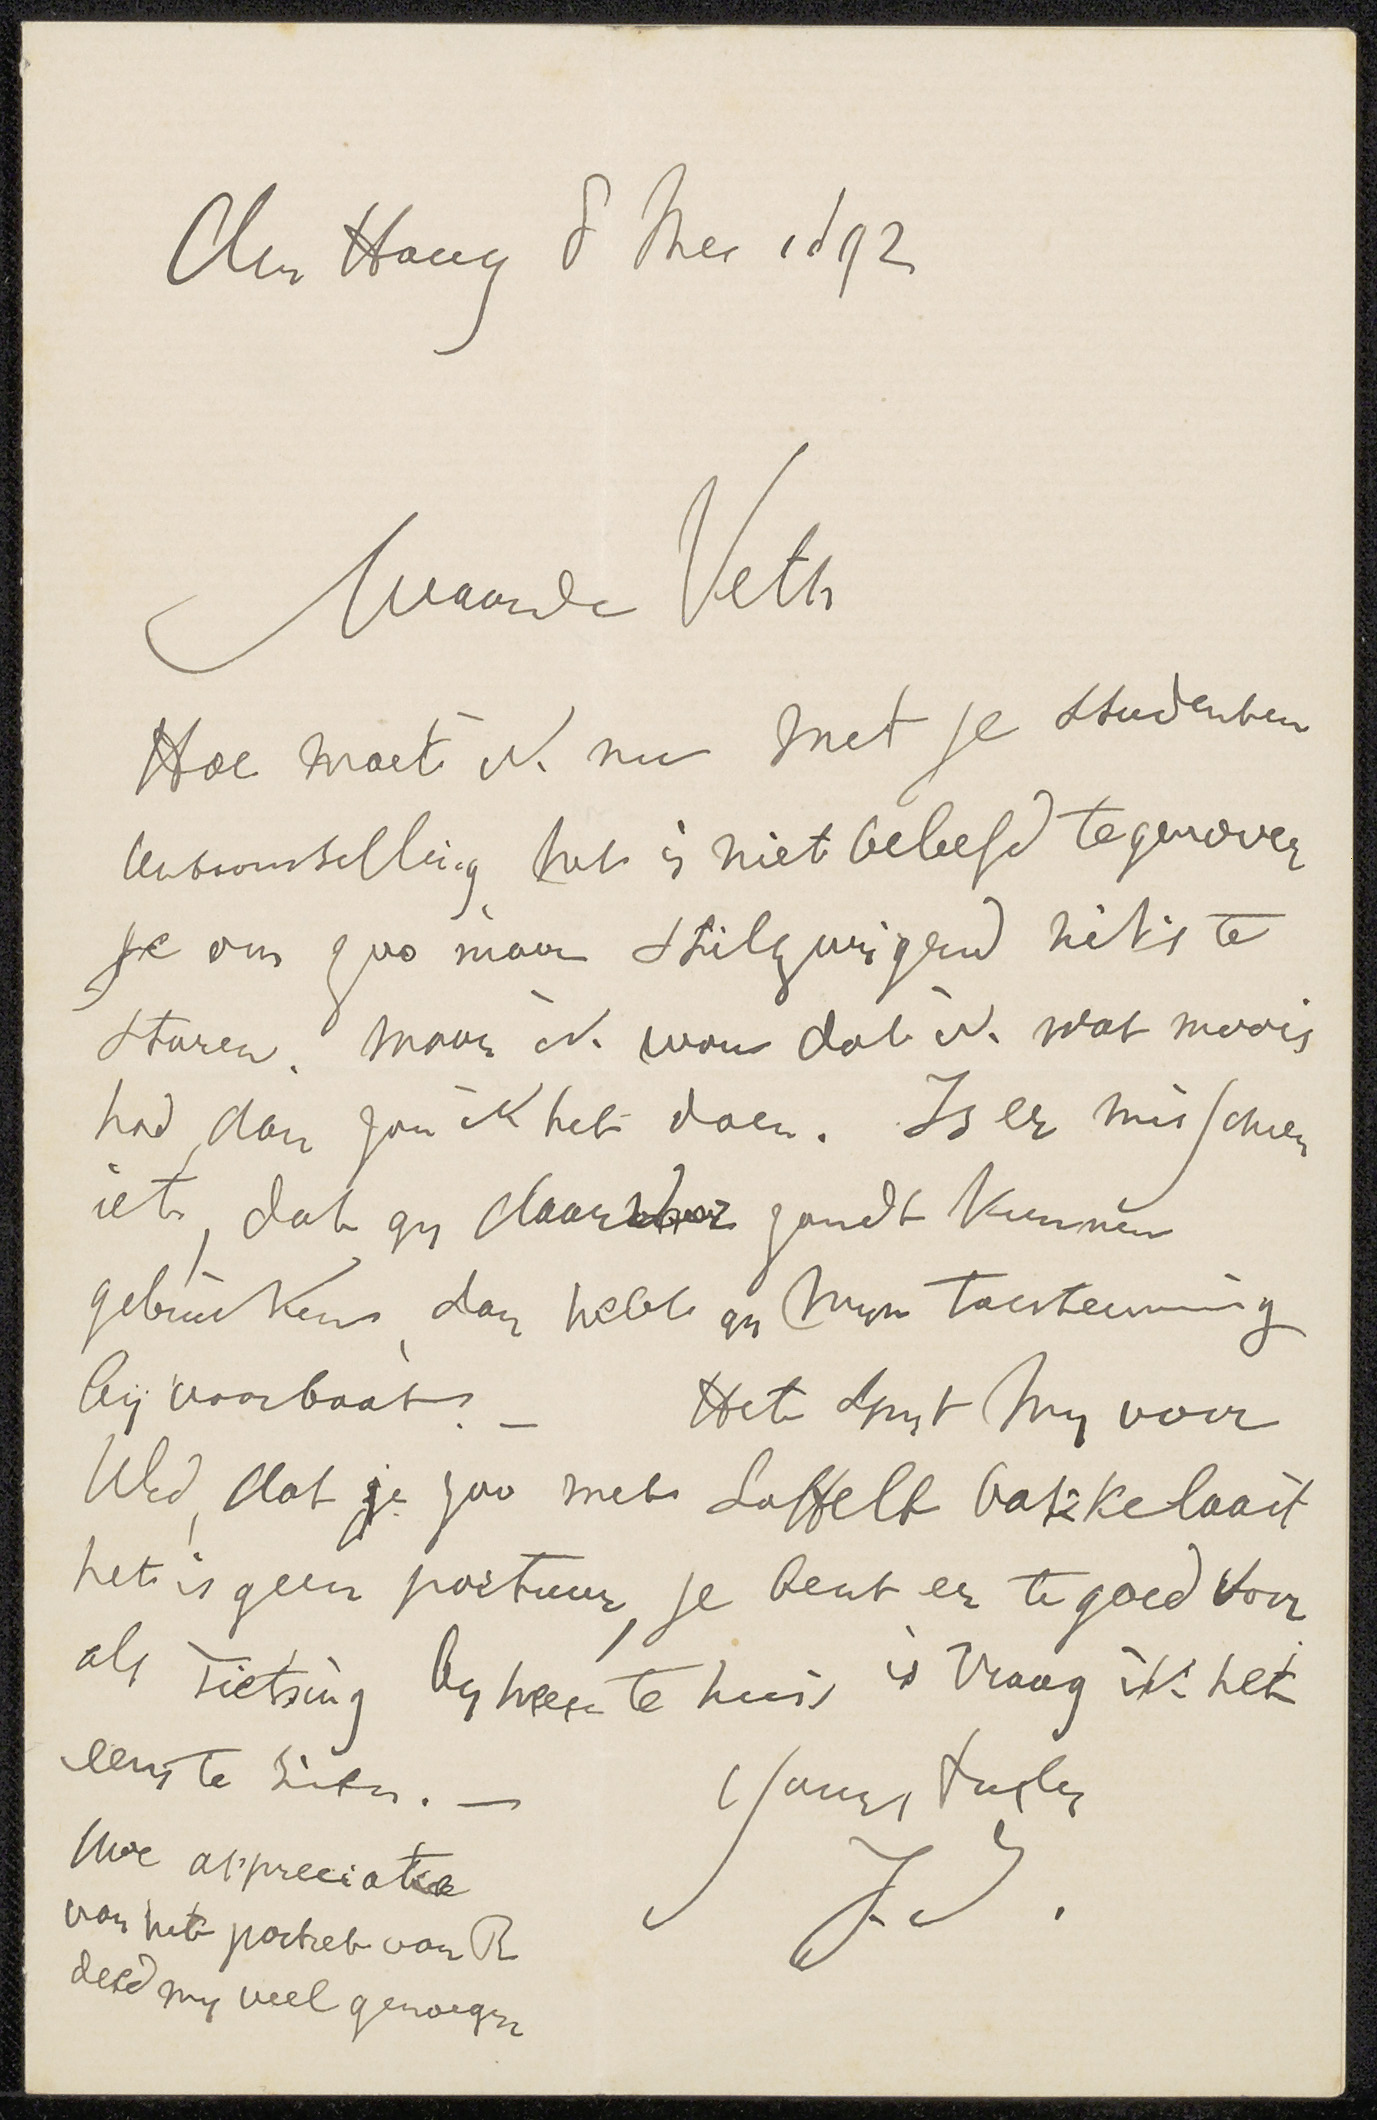 Den Haag 8 Mei 1892
Waarde Veth
Hoe moet ik nu met je studenten
tentoonstelling het is niet beleefd tegenover
je om zoo maar stilzwijgend niets te
sturen. maar ik wou dat ik wat moois
had, dan zou ik het doen. Is er misschien
iets, dat gy daarvoor zoudt kunnen
gebruiken, dan hebt gy myn toestemming
bij voorbaat. — Het spyt my voor
U, dat je zoo met Loffelt bakkelaait
het is geen postuur, je bent er te goed voor
als Tietsing by hem te huis is vraag ik het
eens te zien. —
Uwe appreciatie
van het portret van R
deed my veel genoegen